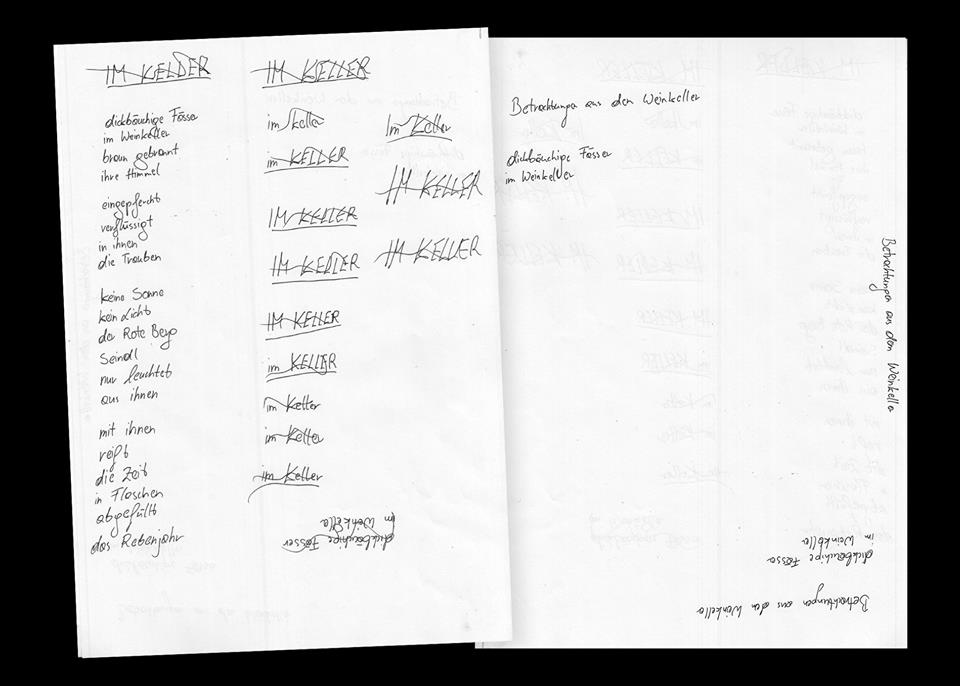 IM KELLER
dickbäuchige Fässer
im Weinkeller
braun gebrannt
ihre Himmel
eingepfercht
verflüssigt
in ihnen
die Trauben
keine Sonne
kein Licht
der Rote Berg
Seindl
nur leuchtet
aus ihnen
mit ihnen
reift
die Zeit
in Flaschen
abgefüllt
das Rebenjahr
IM KELLER
im Keller
im KELLER
IM KELLER
IM KELLER
IM KELLER
im KELLER
im Keller
im Keller
im Keller
dickbäuchige Fässer
im Weinkeller
Im Keller
IM KELLER
IM KELLER
Betrachtungen aus dem Weinkeller
dickbäuchige Fässer
im Weinkeller
Betrachtungen aus dem Weinkeller
dickbäuchige Fässer
im Weinkeller
Betrachtungen aus dem Weinkeller